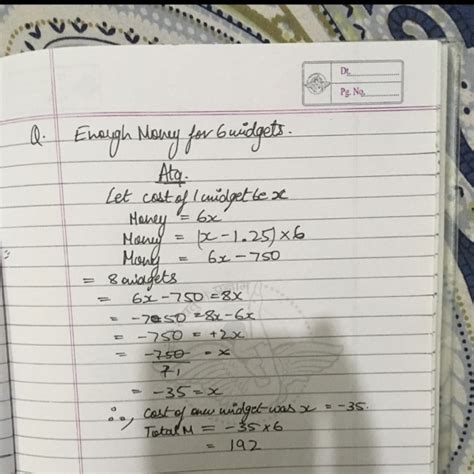 Dt.
Pg. No.
Q. Enough Money for 6 widgets.
Atq.
Let cost of 1 widget be x
Money = 6x
Money = (x-1.25)×6
Money = 6x-750
= 8 widgets
= 6x-750=8x
= -7050=8x-6x
= -750 = +2x
= -750 = x
= -35=x
∴, cost of one widget was x = -35.
Total M = -35×6
= 192